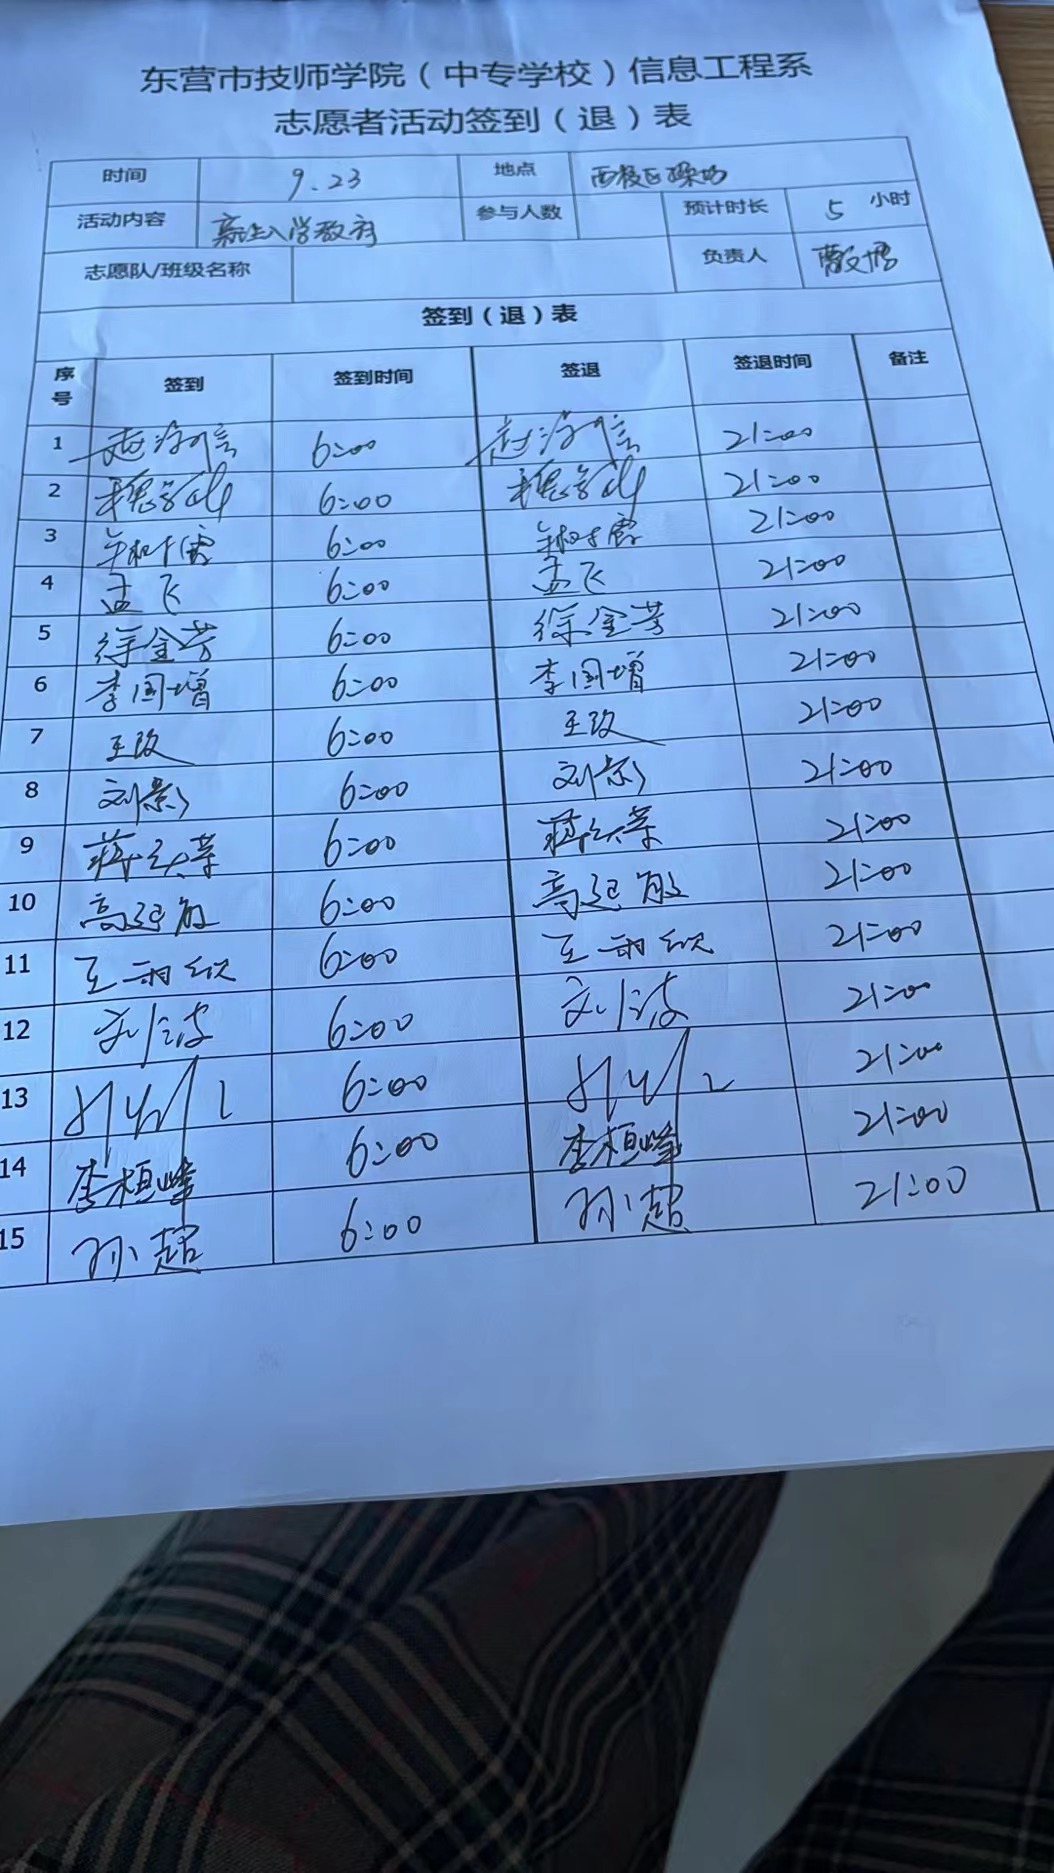 东营市技师学院（中专学校）信息工程系
志愿者活动签到（退）表
时间 9.23 地点 西校区操场
活动内容 新生入学教育 参与人数 预计时长 5 小时
志愿队/班级名称 负责人
签到（退）表
序号 签到 签到时间 签退 签退时间 备注
1 6:00 21:00
2 6:00 21:00
3 6:00 21:00
4 孟飞 6:00 孟飞 21:00
5 徐金芳 6:00 徐金芳 21:00
6 李国增 6:00 李国增 21:00
7 王玫 6:00 王玫 21:00
8 刘影 6:00 刘影 21:00
9 6:00 21:00
10 高延敏 6:00 高延敏 21:00
11 王 6:00 王 21:00
12 刘波 6:00 刘波 21:00
13 6:00 21:00
14 李桓峰 6:00 李桓峰 21:00
15 孙超 6:00 孙超 21:00